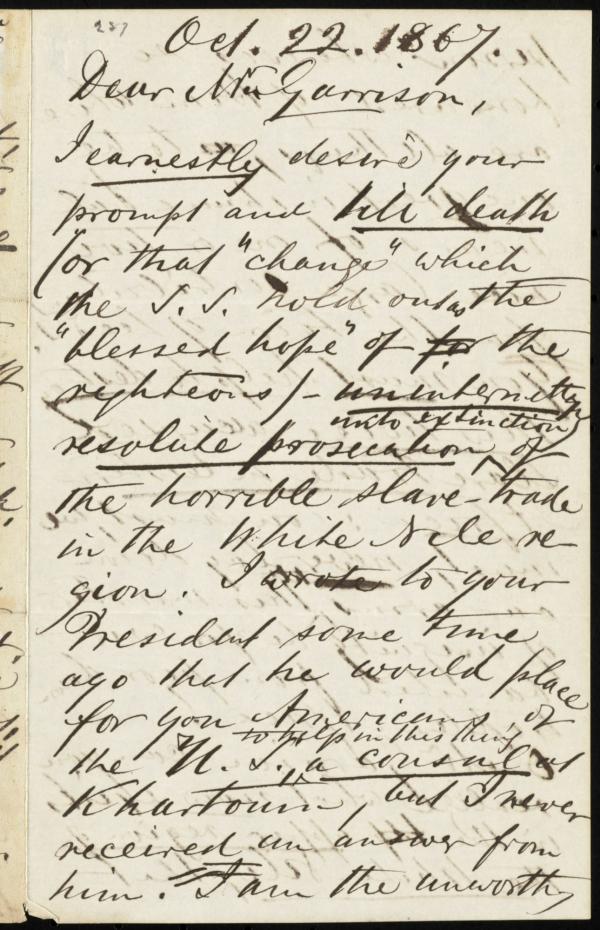 237
Oct. 22. 1867.
Dear Mr Garrison,
I earnestly desire your
prompt and till death
(or that "change" which
the S. S. hold out as the
"blessed hope" of for the
righteous) - uninterruptedly
unto extinction)
resolute prosecution, of
the horrible slave-trade
in the White Nile re-
gion. I wrote to your
President some time
ago that he would place
for you Americans, of
to help in this thing
the U. S., a consul at
Khartoum, but I never
received an answer from
him. I am the unworthy